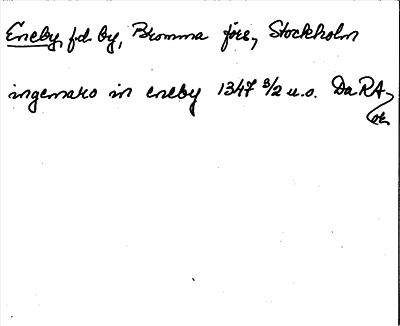 Eneby, fd. by, Bromma förs, Stockholm
ingemaro in eneby 1347 3/2 u.o. Da RA,
or.